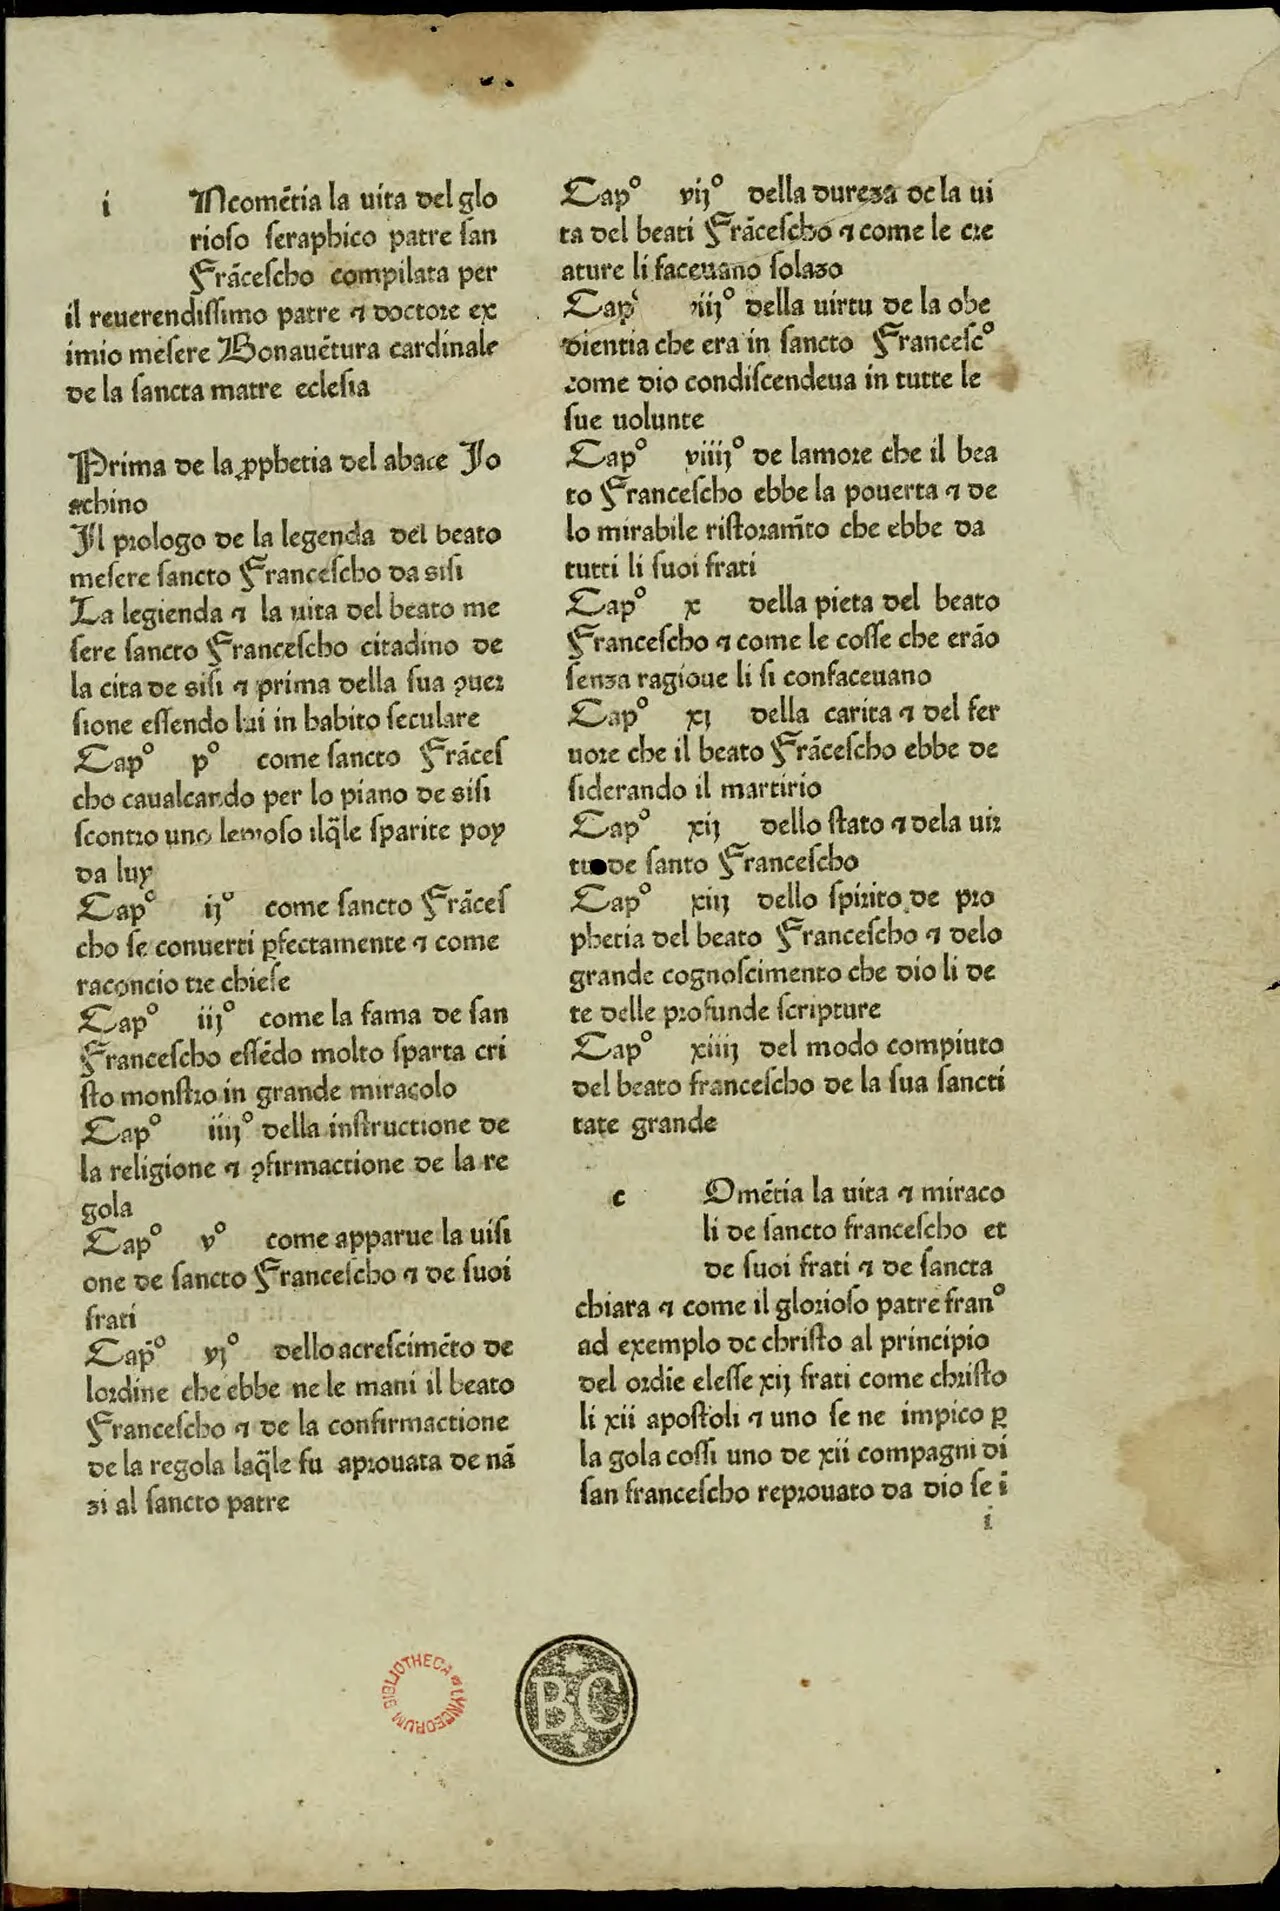 i Ncomētia la uita del glo
rioso seraphico patre san
Frācescho compilata per
il reuerendissimo patre ⁊ doctore ex
imio mesere Bonauētura cardinale
de la sancta matre eclesia
Prima de la ꝓphetia del abate Jo
achino
Jl prologo de la legenda del beato
mesere sancto Francescho da sisi
La legienda ⁊ la uita del beato me
sere sancto Francescho citadino de
la cita de sisi ⁊ prima della sua ꝯuer
sione essendo lui in habito seculare
Capº pº come sancto Frāces
cho caualcando per lo piano de sisi
scontro uno leproso ilq̄le sparite poy
da luy
Capº ijº come sancto Frāces
cho se conuerti ꝑfectamente ⁊ come
raconcio tre chiese
Capº iijº come la fama de san
Francescho essēdo molto sparta cri
sto monstro in grande miracolo
Capº iiijº della instructione de
la religione ⁊ ꝯfirmactione de la re
gola
Capº vº come apparue la uisi
one de sancto Francescho ⁊ de suoi
frati
Capº vjº dello acrescimēto de
lordine che ebbe ne le mani il beato
Francescho ⁊ de la confirmactione
de la regola laq̄le fu aprouata de nā
zi al sancto patre
Capº vijº della dureza de la ui
ta del beati Frācescho ⁊ come le cre
ature li faceuano solazo
Capº viijº della uirtu de la obe
dientia che era in sancto Francescº
come dio condiscendeua in tutte le
sue uolunte
Capº viiijº de lamore che il bea
to Francescho ebbe la pouerta ⁊ de
lo mirabile ristoram̄to che ebbe da
tutti li suoi frati
Capº x della pieta del beato
Francescho ⁊ come le cosse che erāo
senza ragioue li si confaceuano
Capº xj della carita ⁊ del fer
uore che il beato Frācescho ebbe de
siderando il martirio
Capº xij dello stato ⁊ dela uir
tu de santo Francescho
Capº xiij dello spirito de pro
phetia del beato Francescho ⁊ delo
grande cognoscimento che dio li de
te delle profunde scripture
Capº xiiij del modo compiuto
del beato francescho de la sua sancti
tate grande
c Omētia la uita ⁊ miraco
li de sancto francescho et
de suoi frati ⁊ de sancta
chiara ⁊ come il glorioso patre franº
ad exemplo de christo al principio
del ordīe elesse xij frati come christo
li xii apostoli ⁊ uno se ne impico ꝑ
la gola cossi uno de xii compagni di
san francescho reprouato da dio se ī
i
BIBLIOTHECA LYNCEORUM
BC